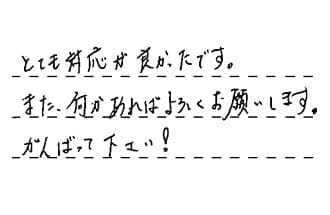 とても対応が良かったです。
また、何かあればよろしくお願いします。
がんばって下さい!